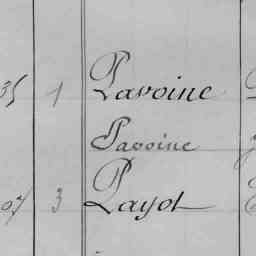 35 1 Pavoine
Pavoine
07 3 Payot